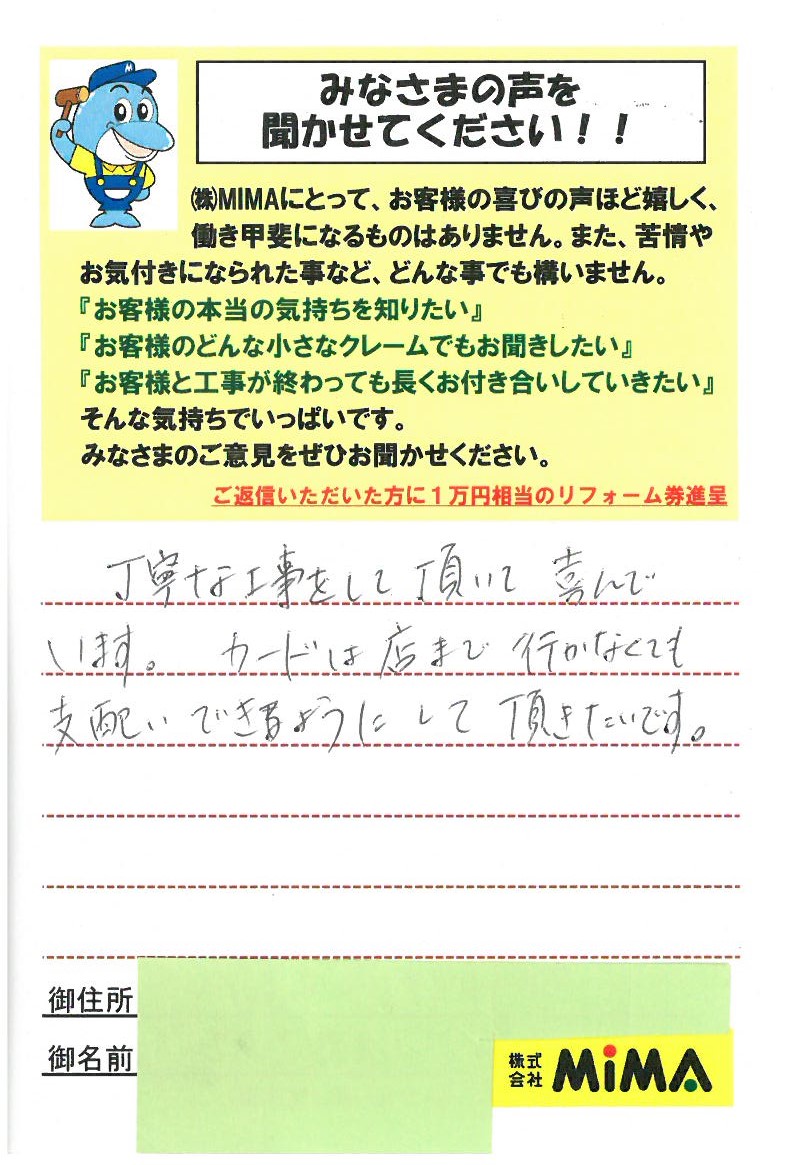 みなさまの声を
聞かせてください！！
㈱MIMAにとって、お客様の喜びの声ほど嬉しく、
働き甲斐になるものはありません。また、苦情や
お気付きになられた事など、どんな事でも構いません。
『お客様の本当の気持ちを知りたい』
『お客様のどんな小さなクレームでもお聞きしたい』
『お客様と工事が終わっても長くお付き合いしていきたい』
そんな気持ちでいっぱいです。
みなさまのご意見をぜひお聞かせください。
ご返信いただいた方に１万円相当のリフォーム券進呈
丁寧な工事をして頂いて 喜んで
います。 カードは店まで行かなくても
支配いできるようにして頂きたいです。
御住所
御名前
株式
会社 MiMA